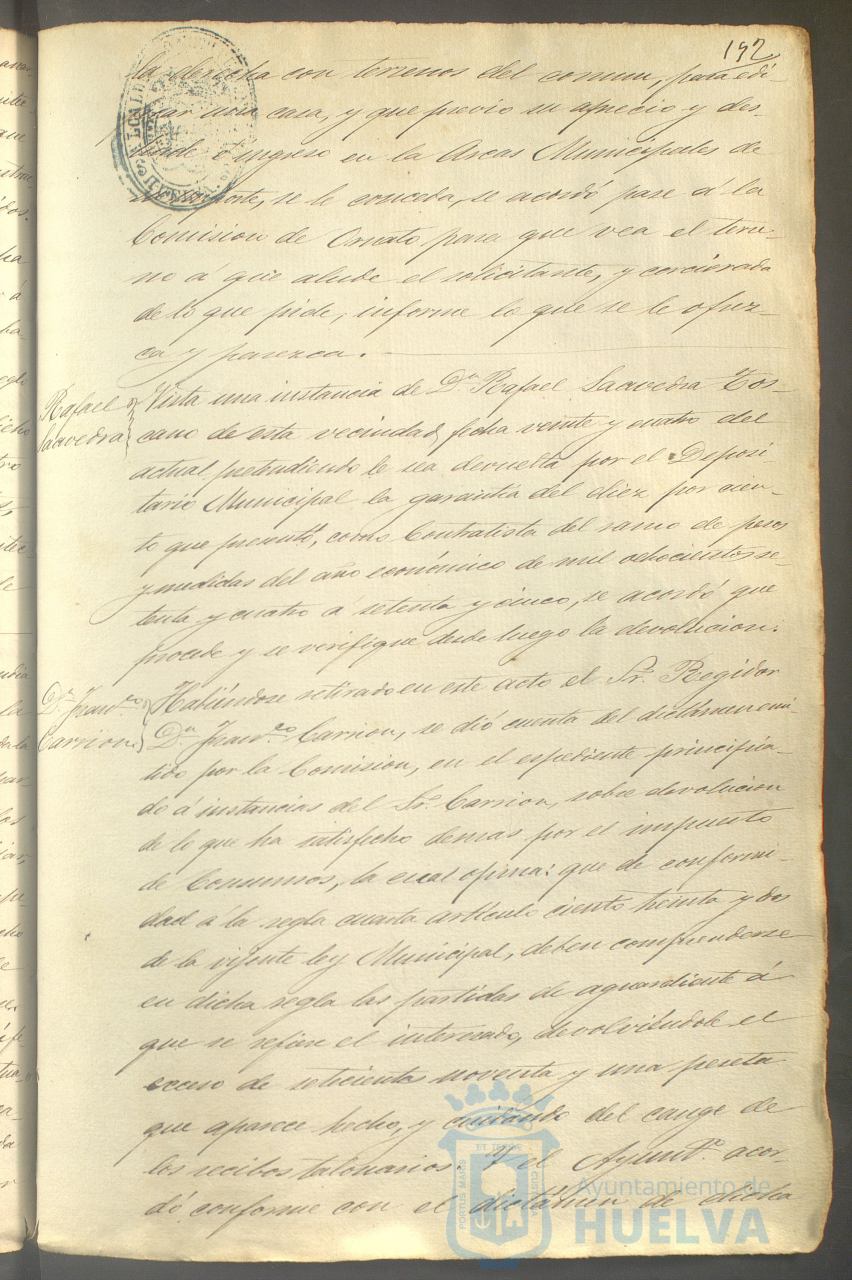 192
la derecha con terrenos del comun, para edi-
ficar una casa, y que previo su aprecio y des-
linde é ingreso en la Arcas Municipales de
su importe, se le conceda, se acordó pase á la
Comision de Ornato para que vea el terre-
no á que alude el solicitante, y cerciorada
de lo que pide, informe lo que se le ofrez-
ca y parezca.
Rafael
Saavedra
Vista una instancia de Dn. Rafael Saavedra Tos-
cano de esta vecindad, fecha veinte y cuatro del
actual pretendiendo le sea devuelta por el Deposi-
tario Municipal la garantia del diez por cien-
to que presentó, como Contratista del ramo de pesos
y medidas del año económico de mil ochocientos se-
tenta y cuatro á setenta y cinco, se acordó que
procede y se verifique desde luego la devolucion.
Dn. Franco.
Carrion.
Habiéndose retirado en este acto el Sr. Regidor
Dn. Franco. Carrion, se dió cuenta del dictámen emi-
tido por la Comision, en el espediente principia-
do á instancias del Sr. Carrion, sobre devolucion
de lo que ha satisfecho demas por el impuesto
de Consumos, la cual opina: que de conformi-
dad á la regla cuarta artículo ciento treinta y dos
de la vijente ley Municipal, deben comprenderse
en dicha regla las partidas de aguardiente á
que se refiere el interesado, devolviéndole el
exceso de setecientas noventa y una peseta
que aparece hecho, y cuidando del cange de
los recibos talonarios. Y el Ayuntº. acor-
dó conforme con el dictámen de dicha
Ayuntamiento de
HUELVA